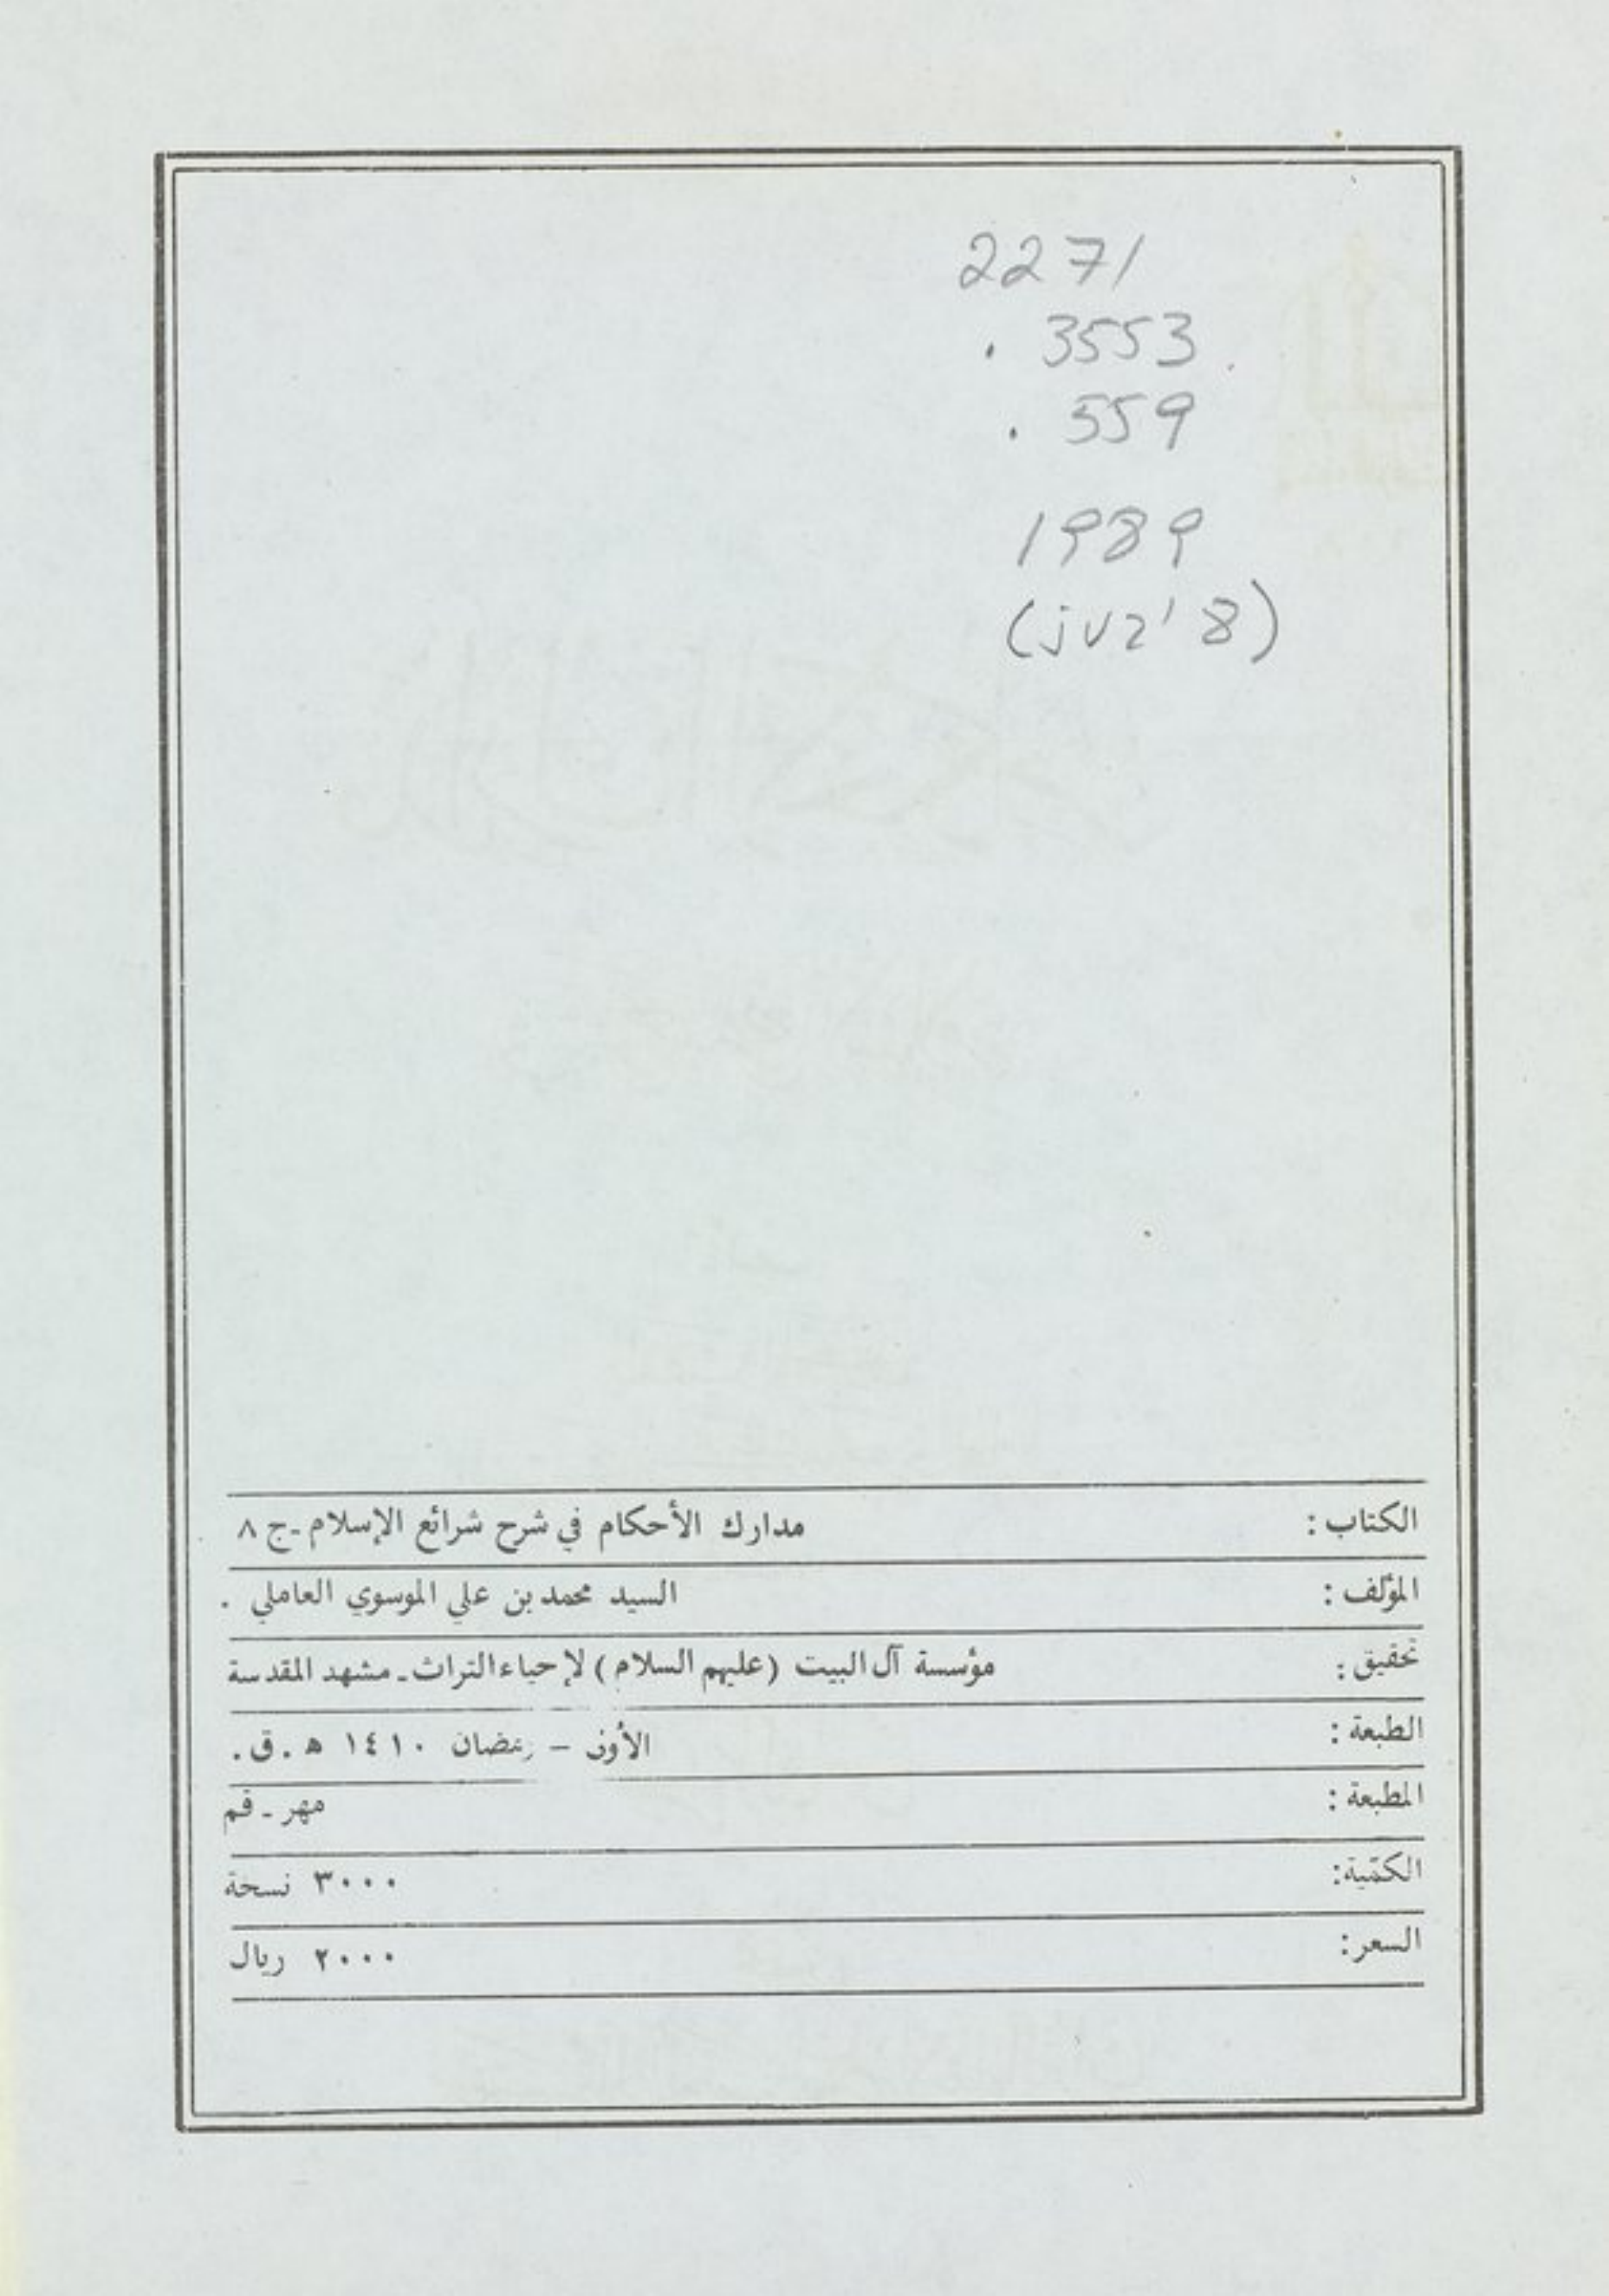 2271
. 3553
. 559
1989
(juz' 8)
الكتاب : مدارك الأحكام في شرح شرائع الإسلام - ج ٨
المؤلف : السيد محمد بن علي الموسوي العاملي .
تحقيق : مؤسسة آل البيت (عليهم السلام) لإحياء التراث - مشهد المقدسة
الطبعة : الأولى – رمضان ١٤١٠ هـ . ق .
المطبعة : مهر - قم
الكمّية : ٣٠٠٠ نسخة
السعر : ٢٠٠٠ ريال